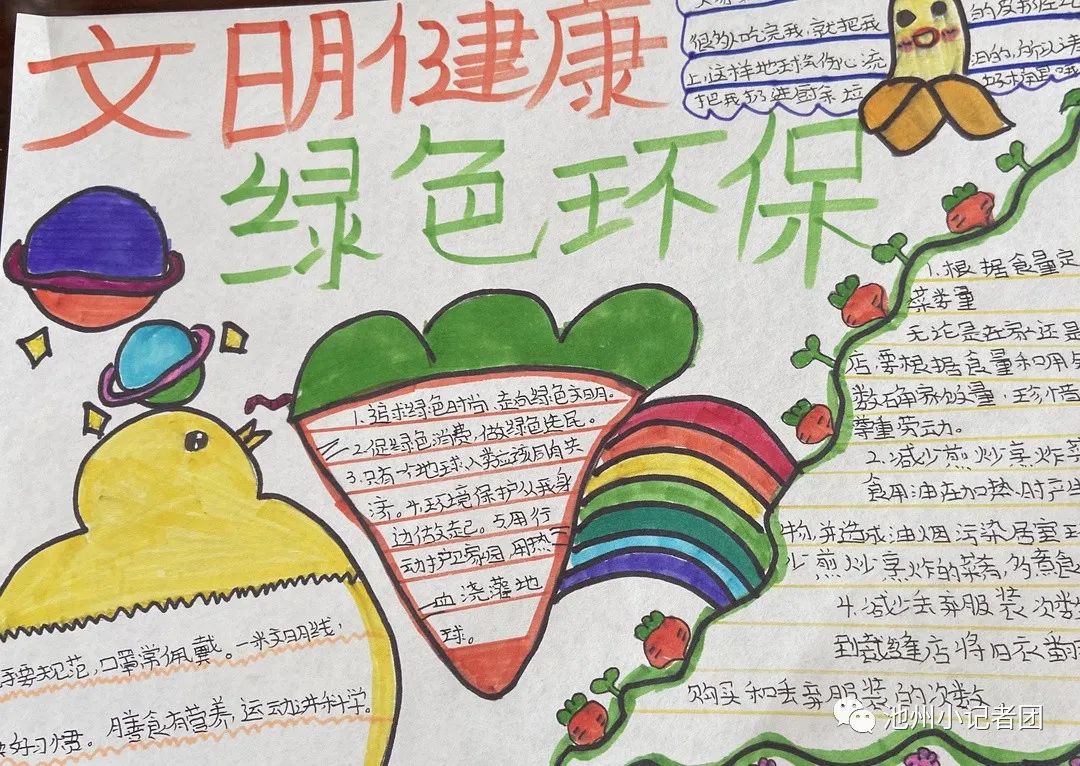 文明健康
绿色环保
很外吃完我,就把我
上,这样地球伤心流
把我扔进厨余垃
的及书往地
泪的,所以请
1.追求绿色时尚,走向绿色文明。
2.促绿色消费,做绿色住民。
3.只有一个地球,人类应该同舟共
济。4.环境保护从我身
边做起。5.用行
动护卫家园,用热
血浇灌地
球。
1.根据食量定
菜娄量
无论是在家还是
店要根据食量和用
数确和数量,珍惜
尊重劳动。
2.减少煎炒烹炸菜
食用油在加热时产
物,并造成油烟污染居室
少煎炒烹炸的菜肴,
4.减少丢弃服装次数
到裁缝店将旧衣
购买和丢弃服装的次数
手要规范,口罩常佩戴。一米文明线,
好习惯。膳食有营养,运动讲科学。
池州小记者团